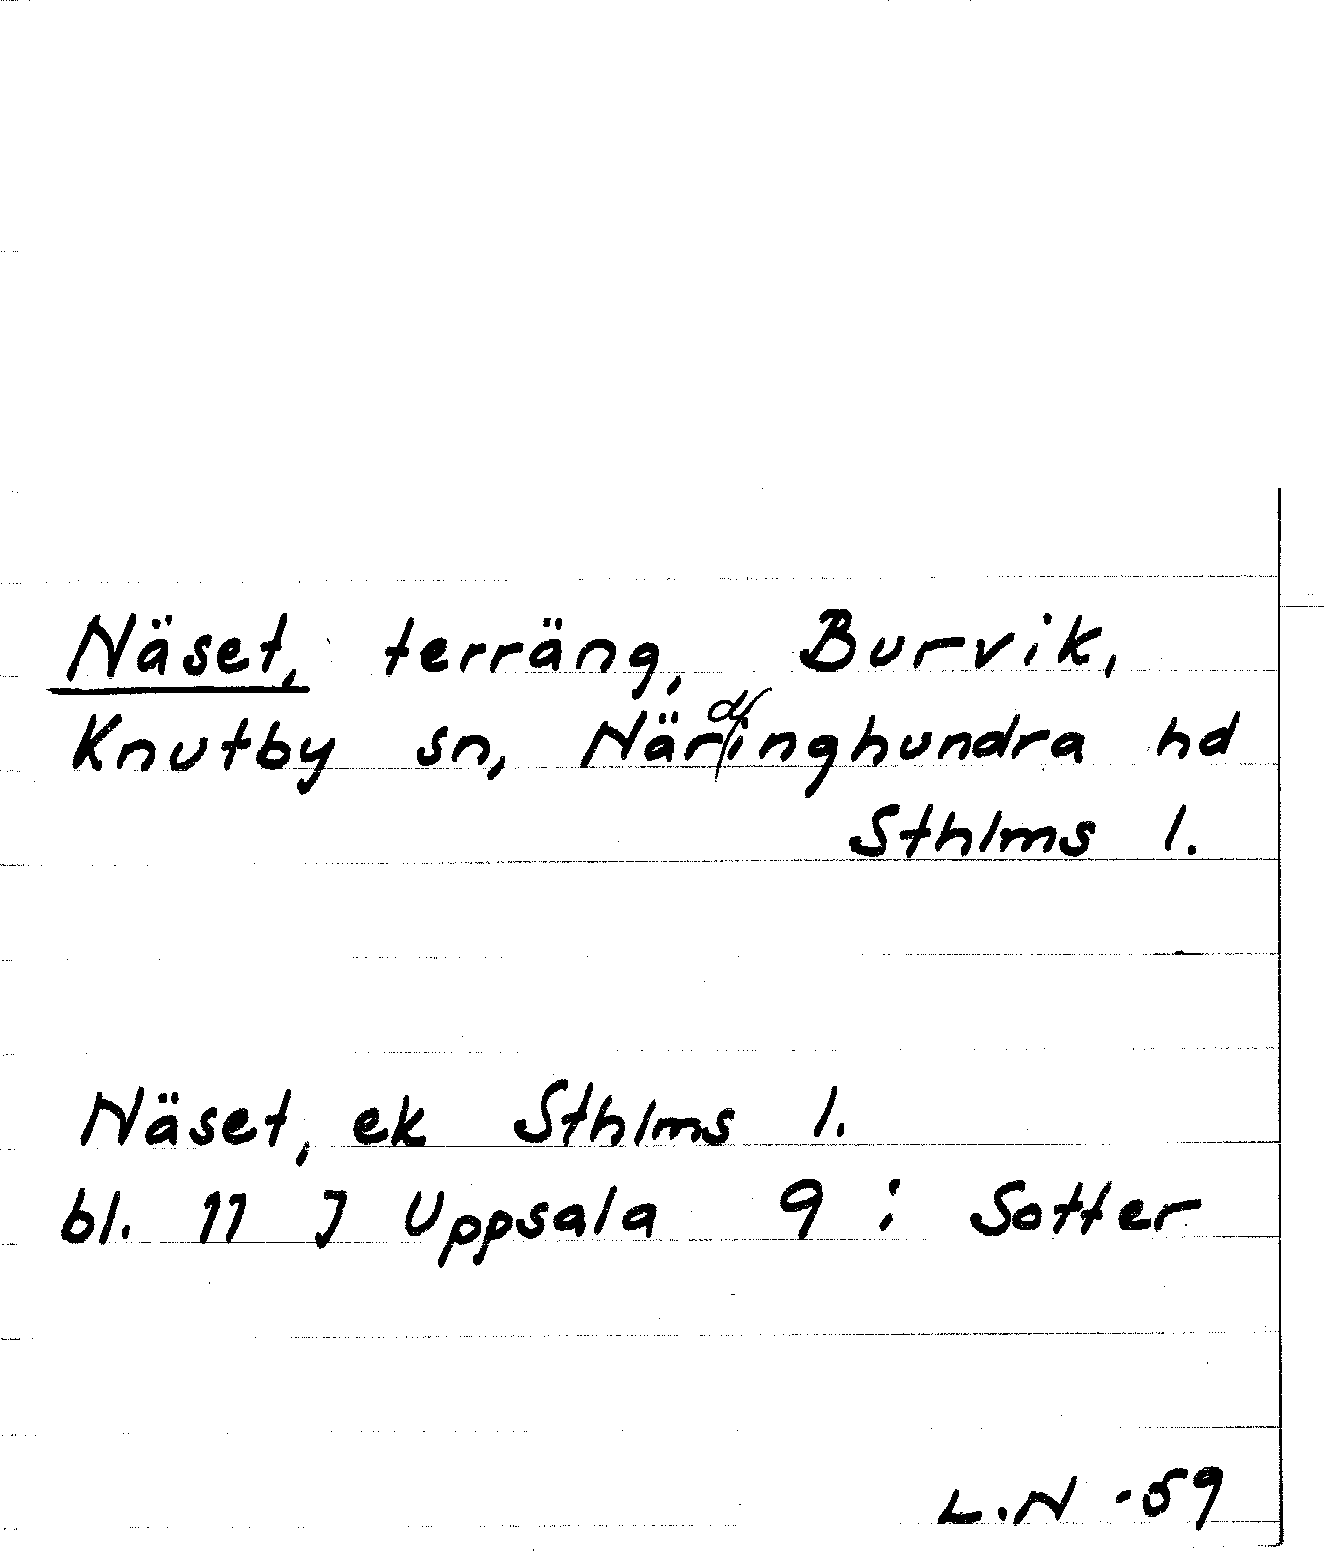 Näset, terräng, Burvik,
Knutby sn, Närdinghundra hd
Sthlms l.
Näset, ek Sthlms l.
bl. 11 J Uppsala 9 i Sotter
L.N -59